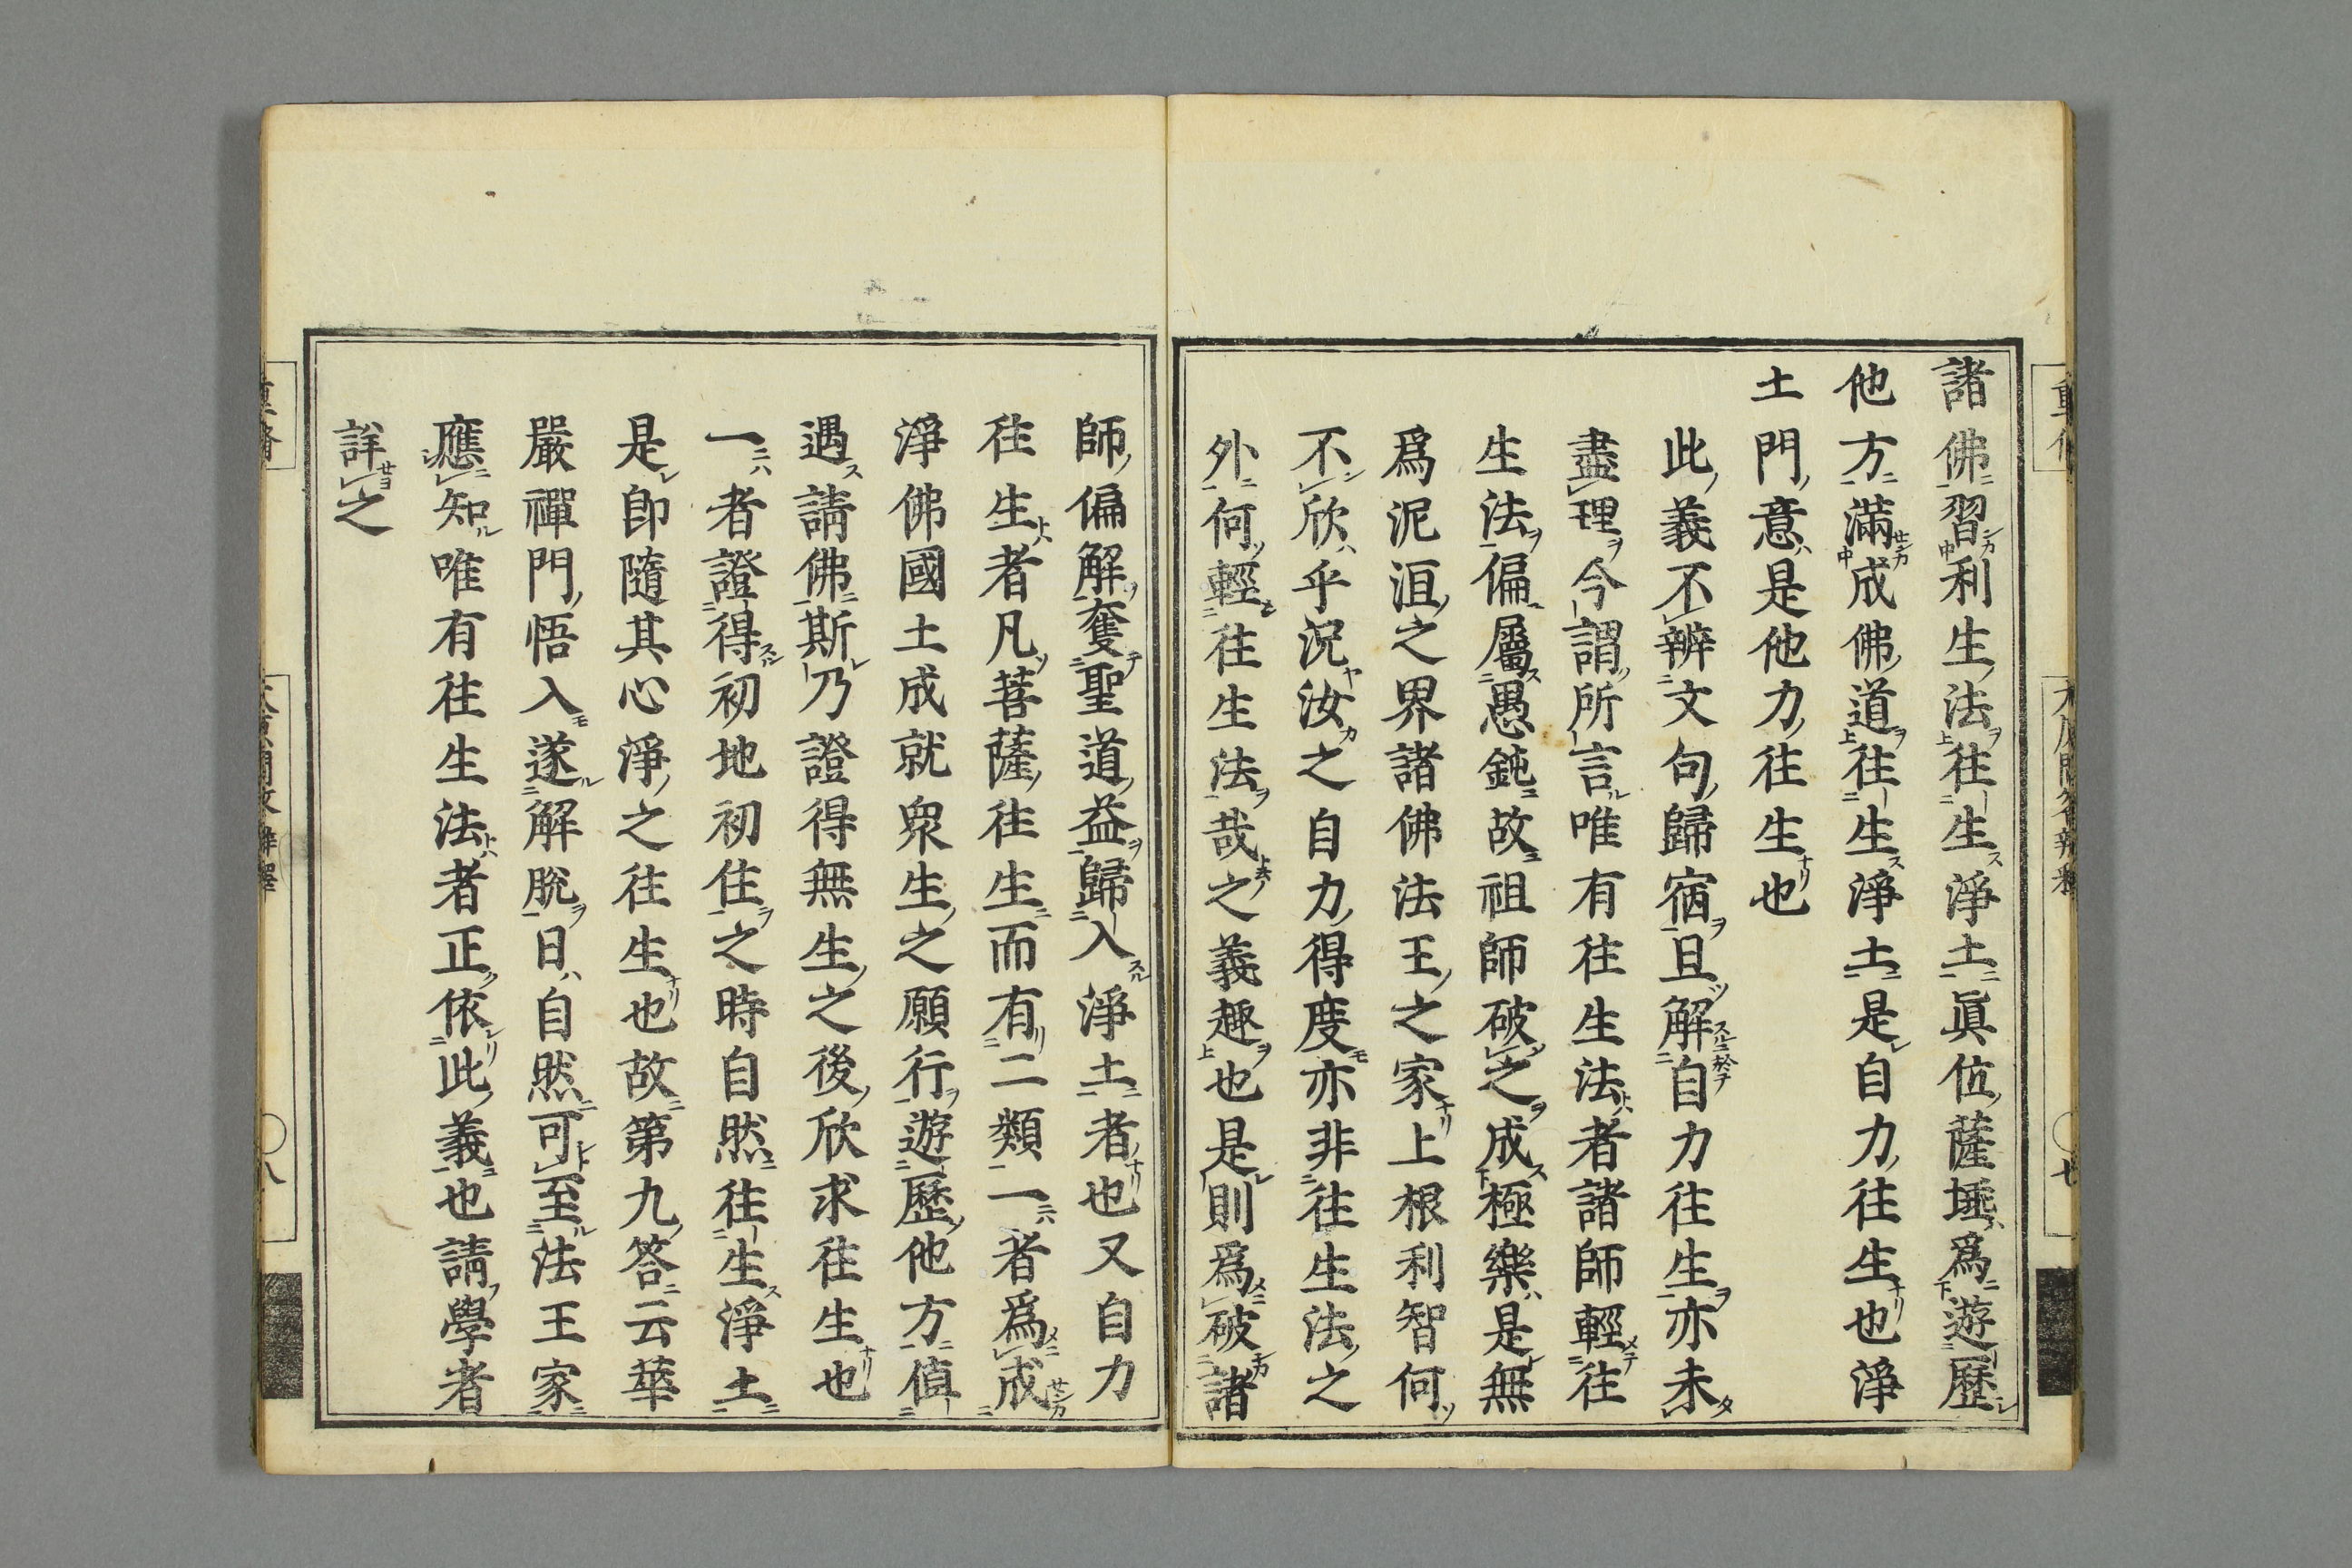 諸佛習利生法往生淨土眞位薩埵爲遊歷
他方滿成佛道往生淨土是自力往生也淨
土門意是他力往生也
此義不辨文句歸宿且解自力往生亦未
盡理今謂所言唯有往生法者諸師輕往
生法偏屬愚鈍故祖師破之成極樂是無
爲泥洹之界諸佛法王之家上根利智何
不欣乎況汝之自力得度亦非往生法之
外何輕往生法哉之義趣也是則爲破諸
師偏解奪聖道益歸入淨土者也又自力
往生者凡菩薩往生而有二類一者爲成
淨佛國土成就衆生之願行遊歷他方値
遇請佛斯乃證得無生之後欣求往生也
一者證得初地初住之時自然往生淨土
是卽隨其心淨之往生也故第九答云華
嚴禪門悟入遂解脫日自然可至法王家
應知唯有往生法者正依此義也請學者
詳之